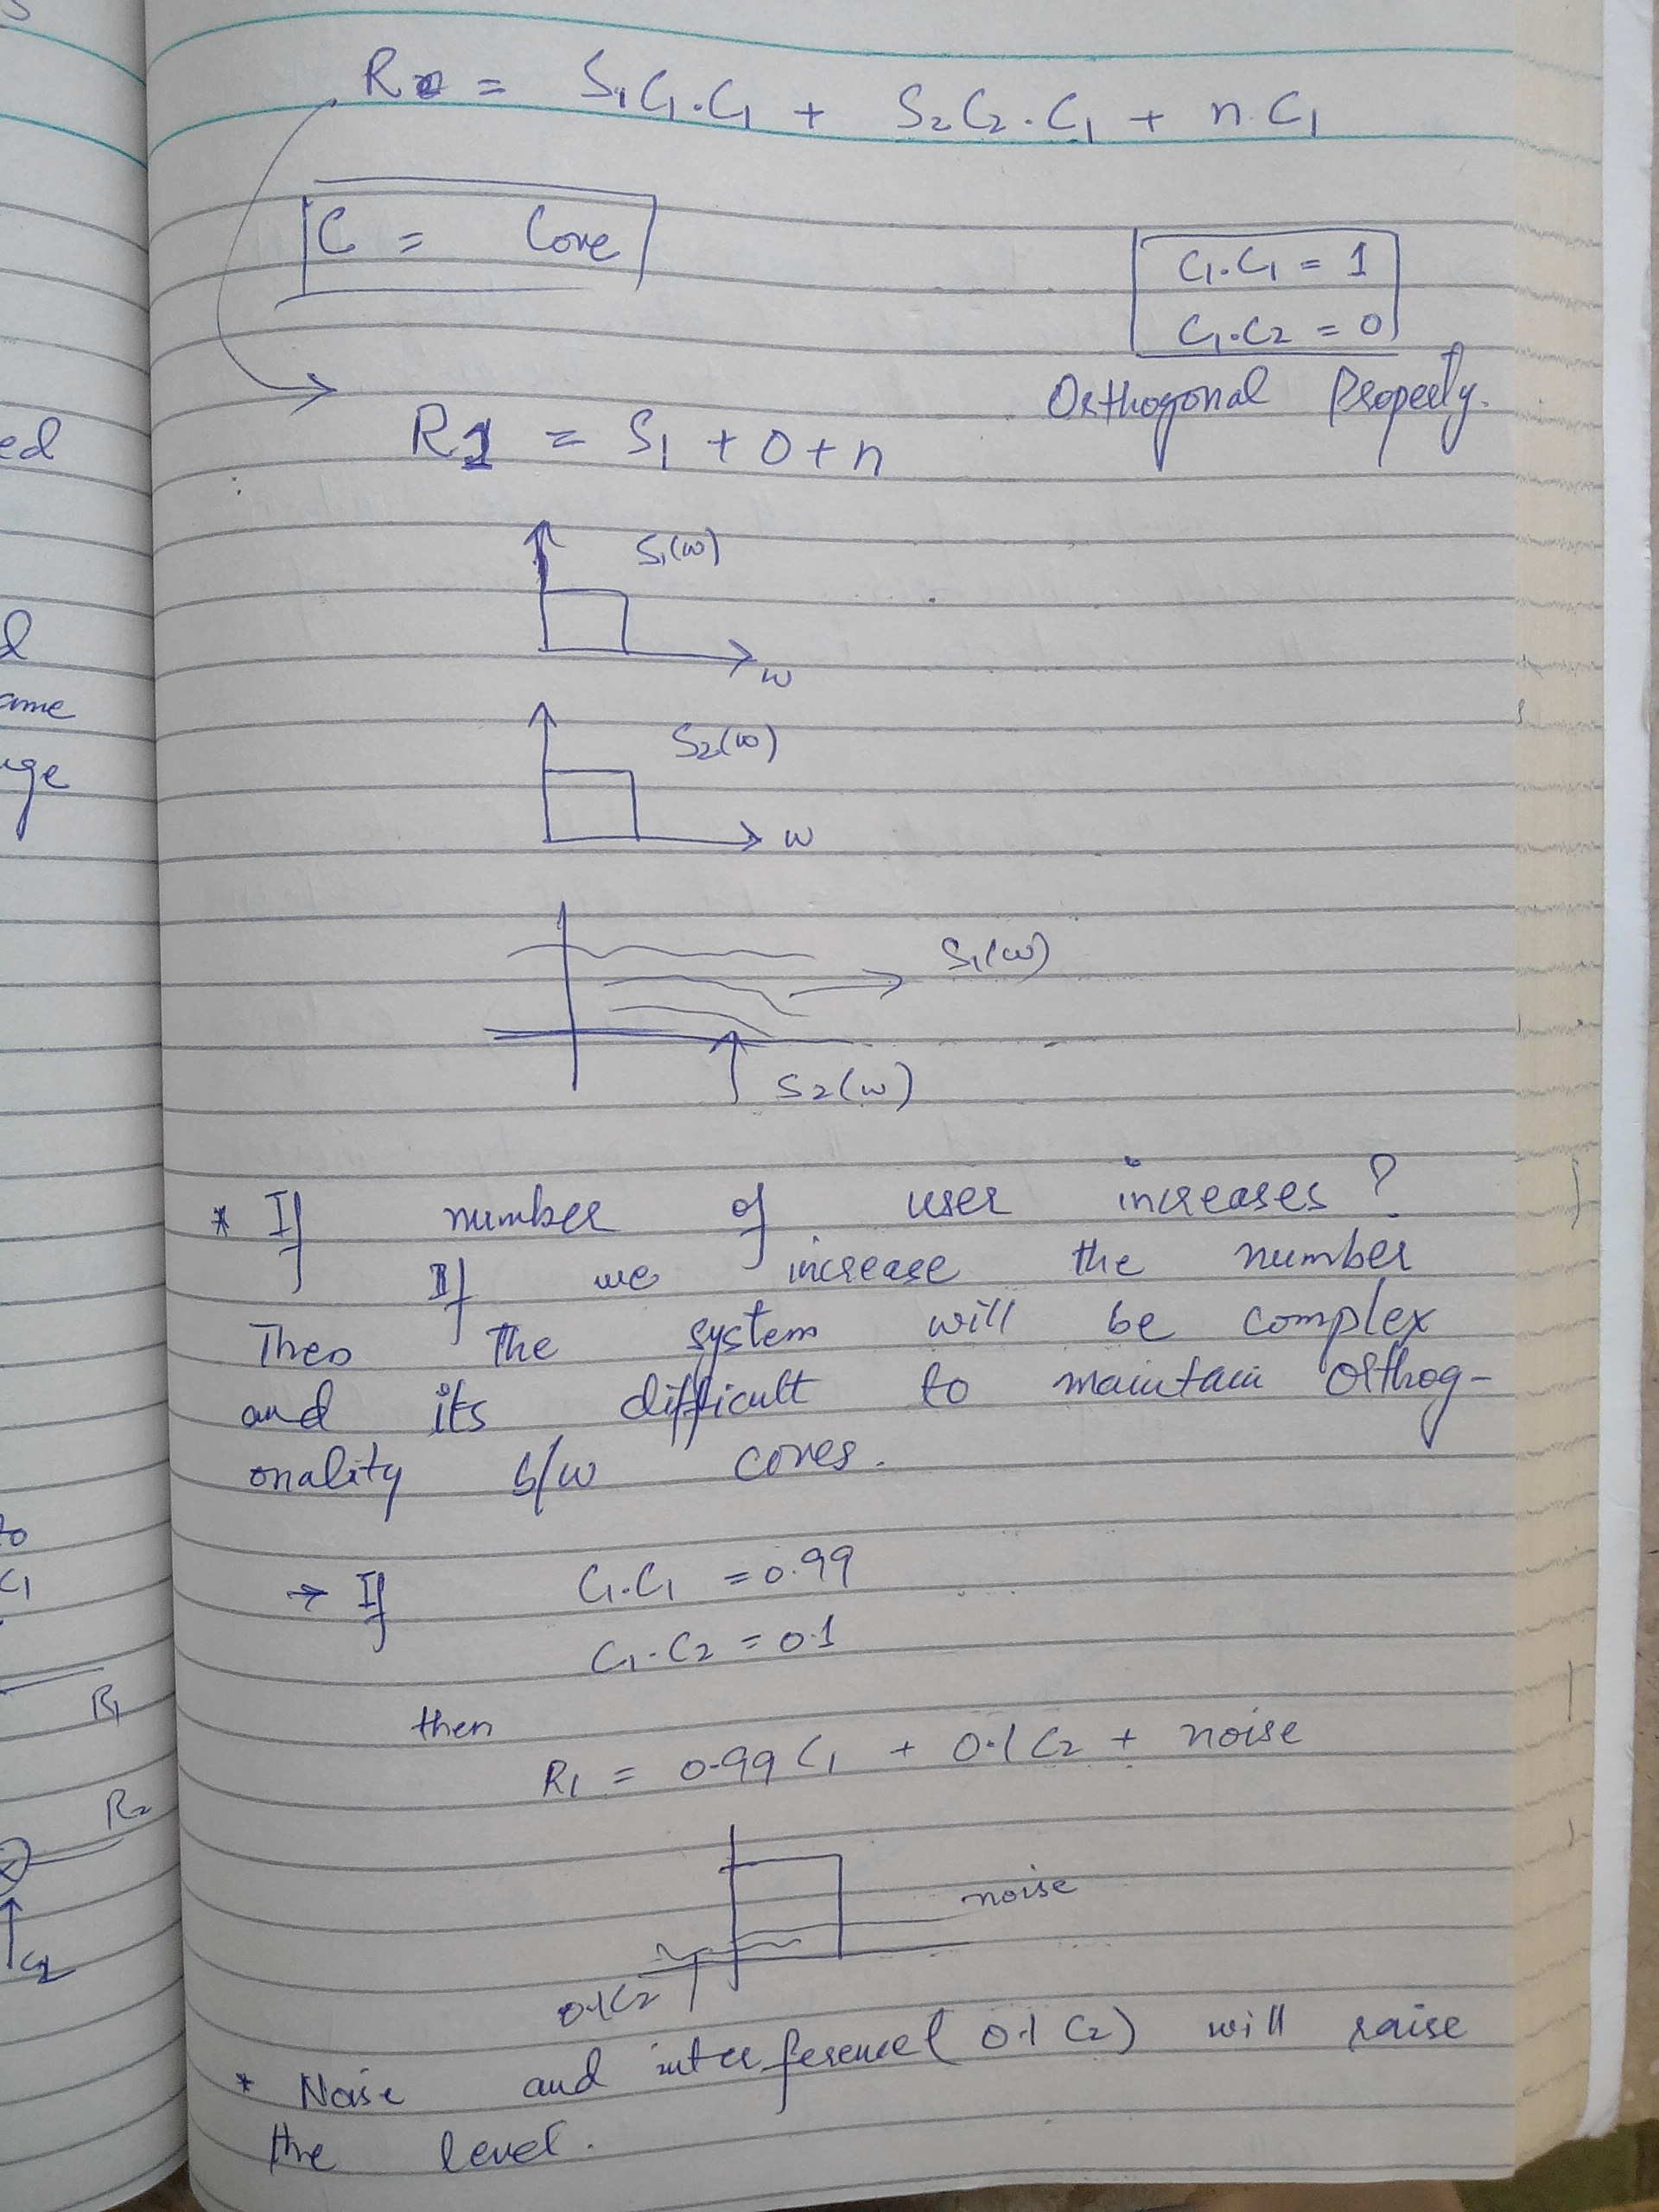 R = S₁C₁.C₁ + S₂C₂.C₁ + n.C₁
C = Core
C₁.C₁ = 1
C₁.C₂ = 0
Orthogonal Property.
R1 = S₁ + 0 + n
S₁(w)
w
S₂(w)
w
S₁(w)
S₂(w)
* If number of user increases ?
If we increase the number
Then the system will be complex
and its difficult to maintain orthog-
onality b/w cores.
→ If C₁.C₁ = 0.99
C₁.C₂ = 0.1
then
R₁ = 0.99 C₁ + 0.1 C₂ + noise
noise
0.1C₂
* Noise and interference ( 0.1 C₂ ) will raise
the level.
ed
d
ame
age
to
C₁
R₁
R₂
C₂